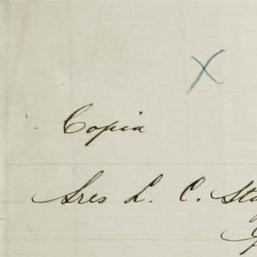 X
Copia
Sres L. C.